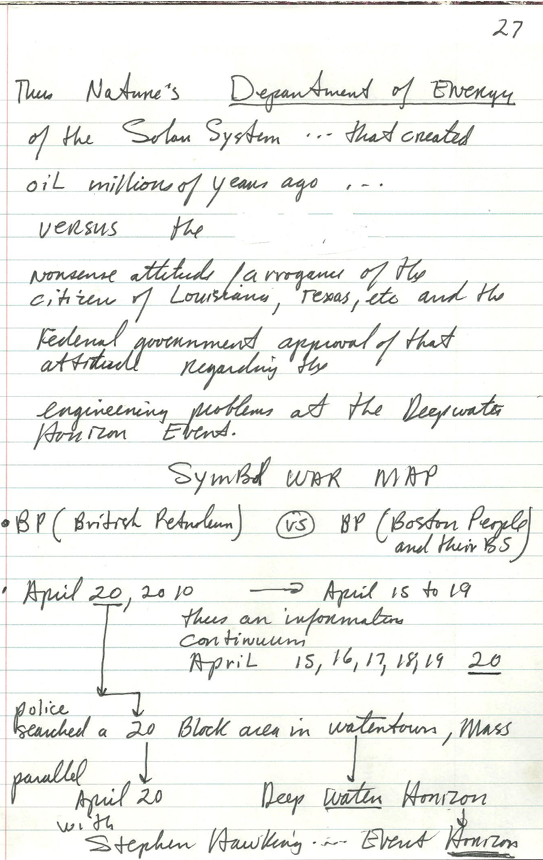 27
Thus Nature's Department of Energy
of the Solar System ... that created
oil millions of years ago ...
versus the
nonsense attitude / arrogance of the
citizen of Louisiana, Texas, etc and the
Federal government approval of that
attitude regarding the
engineering problems at the Deepwater
Horizon Event.
Symbol WAR MAP
• BP (British Petroleum) VS BP (Boston People
and their BS)
• April 20, 2010 → April 15 to 19
thus an information
continuum
April 15, 16, 17, 18, 19 20
police
searched a 20 Block area in watertown, Mass
parallel
April 20 Deep water Horizon
with
Stephen Hawking ... Event Horizon